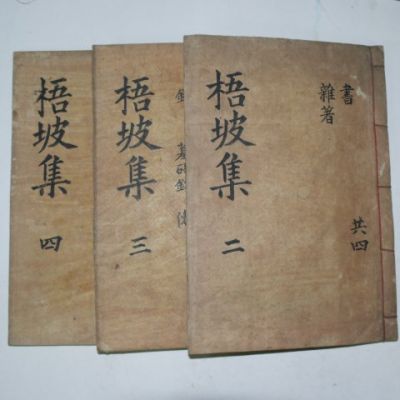 梧坡集 二
書
雜著
共四
梧坡集 三
墓碣銘
梧坡集 四